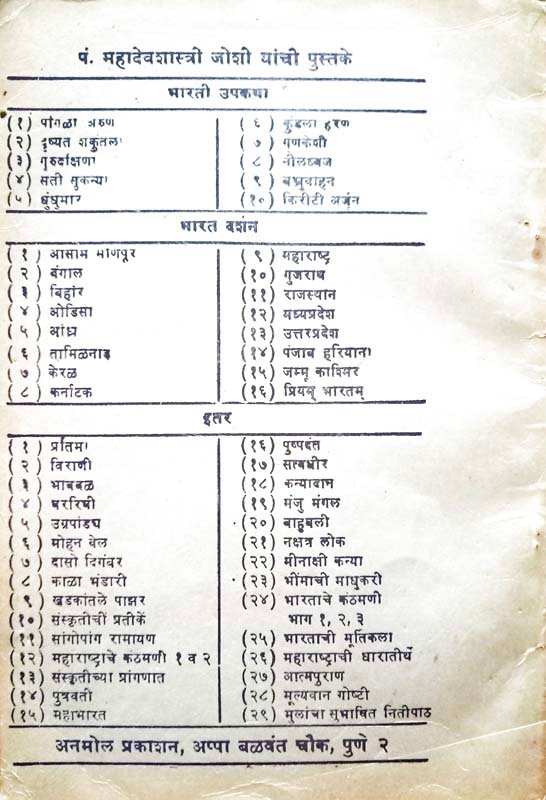 पं. महादेवशास्त्री जोशी यांची पुस्तके
भारती उपकथा
(१) पांगळा अरुण
(२) दुष्यंत शकुंतला
(३) गुरुदक्षिणा
(४) सती सुकन्या
(५) धुंधुमार
(६) कुंडला हरण
(७) गणकेशी
(८) नीलध्वज
(९) बभ्रुवाहन
(१०) किरीटी अर्जुन
भारत दर्शन
(१) आसाम मणिपूर
(२) बंगाल
(३) बिहार
(४) ओडिसा
(५) आंध्र
(६) तामिळनाड
(७) केरळ
(८) कर्नाटक
(९) महाराष्ट्र
(१०) गुजराथ
(११) राजस्थान
(१२) मध्यप्रदेश
(१३) उत्तरप्रदेश
(१४) पंजाब हरियाना
(१५) जम्मू काश्मिर
(१६) प्रियम् भारतम्
इतर
(१) प्रतिमा
(२) विराणी
(३) भावबळ
(४) वररिची
(५) उग्रपांड्य
(६) मोहन वेल
(७) दासो दिगंबर
(८) काळा भंडारी
(९) खडकांतले पाझर
(१०) संस्कृतीचीं प्रतीकें
(११) सांगोपांग रामायण
(१२) महाराष्ट्राचे कंठमणी १ व २
(१३) संस्कृतीच्या प्रांगणात
(१४) पुत्रवती
(१५) महाभारत
(१६) पुष्पदंत
(१७) सत्वधीर
(१८) कन्यादान
(१९) मंजु मंगल
(२०) बाहुबली
(२१) नक्षत्र लोक
(२२) मीनाक्षी कन्या
(२३) भींमाची माधुकरी
(२४) भारताचे कंठमणी
भाग १, २, ३
(२५) भारताची मूर्तिकला
(२६) महाराष्ट्राची धारातीर्थे
(२७) आत्मपुराण
(२८) मूल्यवान गोष्टी
(२९) मुलांचा सुभाषित नितीपाठ
अनमोल प्रकाशन, अप्पा बळवंत चौक, पुणे २